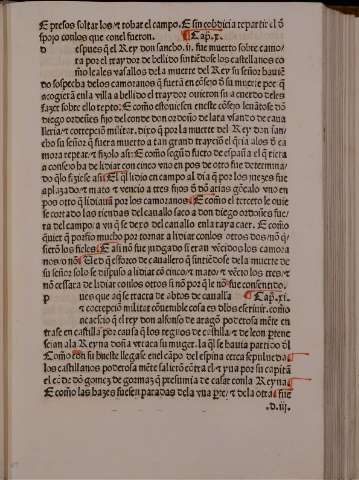 E presos soltar los ⁊ robar el campo. E sin cobdicia repartir el d̄
sporo con los que con el fueron. Cap. x.
d espues q̄ el Rey don sancho .ii. fue muerto sobre camo/
ra por el traydor de bellido sintiēdose los castellanos co
mo leales vasallos dela muerte del Rey su señor hauiē
do sospecha delos çamoranos q̄ fuerā en cōsejo d̄ su muerte por q̄
acogierā en la villa a bellido el traydor ouieron su acuerdo deles
fazer sobre ello repto. E como estouiesen en este cōsejo leuātose dō
diego ordoñes fijo del conde don ordoño de lara vsando de caua
lleria ⁊ correpcion militar. dixo q̄ por la muerte del Rey don san/
cho su señor q̄ fuera muerto a tan grand trayciō el q̄ria a los d̄ ça
mora reptar. ⁊ fizolo asi. E como segūd fuero de españa el q̄ riepta
a consejo ha de lidiar con cinco vno en pos de otro fue determina/
do q̄ lo fiziese asi. El q̄l lidio en campo al dia q̄ por los juezes fue
aplazado ⁊ mato ⁊ vencio a tres fijos d̄ dō arias gōçalo vno en
pos otro q̄ lidiauā por los çamoranos. E como el tercero le ouie
se cortado las riendas del cauallo saco a don diego ordoñes fue/
ra del campo a vn q̄ se dexo del cauallo en la raya caer. E como
quier q̄ porfio mucho por tornar a lidiar con los otros dos no q̄
sierō los fieles. E asi nō fue judgado si eran vēcidos los çamora
nos o nō. Ued q̄ esforço de cauallero q̄ sintiēdose dela muerte de
su señor solo se dispuso a lidiar cō cinco ⁊ mato ⁊ vēcio los tres ⁊
nō cessara de lidiar con los otros si nō por q̄ le nō fue consentido.
p ues que aq̄ se tracta de abtos de caualleria Cap. xi.
⁊ correpciō militar cōuenible cosa es dlos escriuir. como
acaescio q̄ el rey don alfonso de aragō poderosa mēte en
trase en castilla por causa q̄ los reynos de castilla ⁊ de leon ptene
scian ala Reyna doña vrraca su muger. la q̄l se hauia partido d̄l
Como con su hueste llegase en el cāpo del espina cerca sepulueda
los castellanos poderosa mēte salierō cōtra el ⁊ yua por su capitā
el cōde dō gomez de gormaz q̄ presumia de casar con la Reyna
E como las hazes fuesen paradas dela vna pte ⁊ dela otra fue
.d.iii.